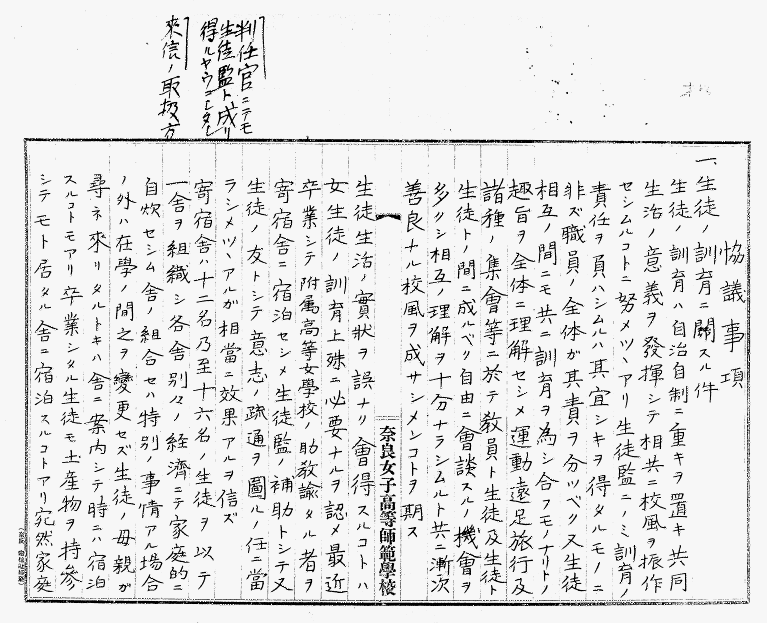 判任官ニテモ
生徒監ト成リ
得ルヤウニシタシ
来信ノ取扱方
協議事項
一、生徒ノ訓育ニ関スル件
生徒ノ訓育ハ自治自制ニ重キヲ置キ共同
生活ノ意義ヲ発揮シテ相共ニ校風ヲ振作
セシムルコトニ努メツヽアリ生徒監ニノミ訓育ノ
責任ヲ負ハシムルハ其宜シキヲ得タルモノニ
非ズ職員ノ全体ガ其責ヲ分ツベク又生徒
相互ノ間ニモ共ニ訓育ヲ為シ合フモノナリトノ
趣旨ヲ全体ニ理解セシメ運動遠足旅行及
諸種ノ集會等ニ於テ教員ト生徒及生徒ト
生徒トノ間ニ成ルベク自由ニ會談スルノ機會ヲ
多クシ相互ノ理解ヲ十分ナラシムルト共ニ漸次
善良ナル校風ヲ成サシメンコトヲ期ス
奈良女子高等師範學校
生徒生活ノ實状ヲ誤ナリ會得スルコトハ
女生徒ノ訓育上殊ニ必要ナルヲ認メ最近
卒業シテ附属高等女學校ノ助教諭タル者ヲ
寄宿舎ニ宿泊セシメ生徒監ノ補助トシテ又
生徒ノ友トシテ意志ノ疏通ヲ圖ルノ任ニ當
ラシメツヽアルガ相當ニ效果アルヲ信ズ
寄宿舎ハ十二名乃至十六名ノ生徒ヲ以テ
一舎ヲ組織シ各舎別々ノ経済ニテ家庭的ニ
自炊セシム舎ノ組合セハ特別ノ事情アル場合
ノ外ハ在學ノ間之ヲ變更セズ生徒ノ母親ガ
尋ネ來リタルトキハ舎ニ案内シテ時ニハ宿泊
スルコトモアリ卒業シタル生徒モ土産物ヲ持参
シテモト居タル舎ニ宿泊スルコトアリ宛然家庭